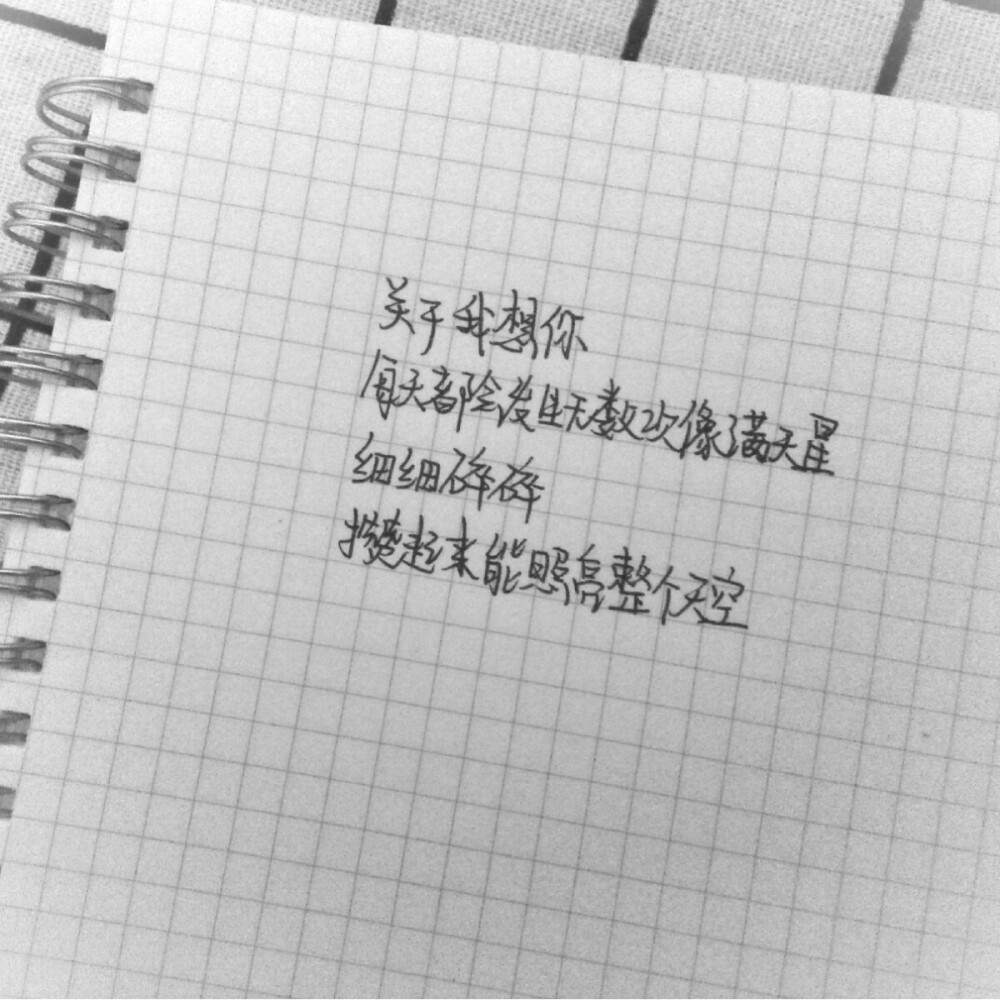 关于我想你
每天都会发生无数次像满天星
细细碎碎
攒起来能照亮整个天空